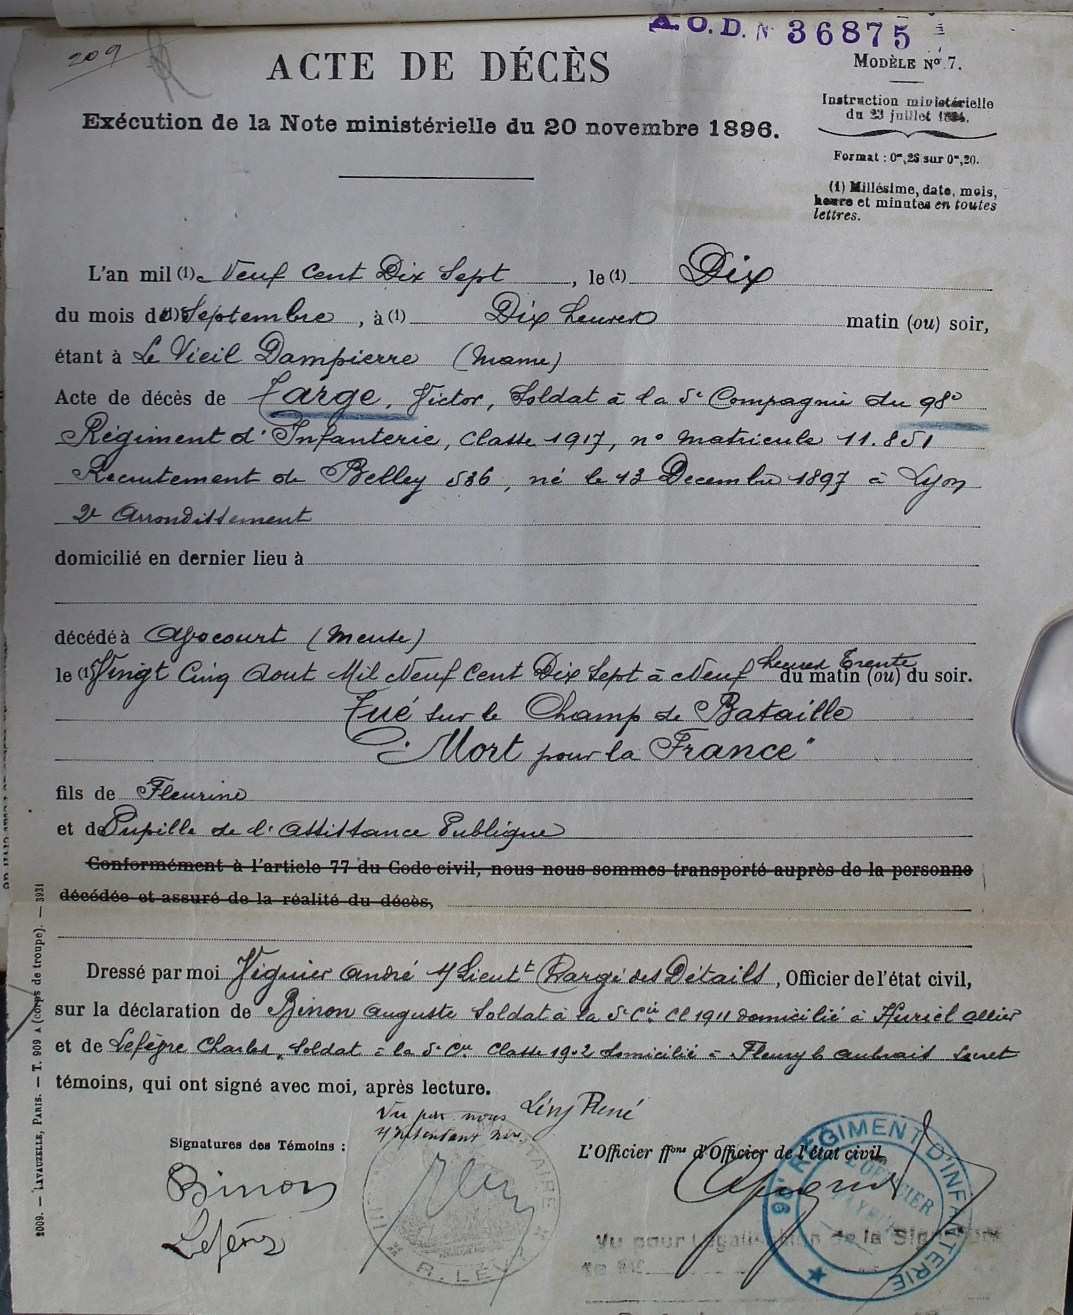 209
A.O.D. N° 36875
ACTE DE DÉCÈS
MODÈLE N° 7.
Exécution de la Note ministérielle du 20 novembre 1896.
Instruction ministérielle
du 23 juillet
Format : 0m,26 sur 0m,20.
(1) Millésime, date, mois,
heure et minutes en toutes
lettres.
L'an mil (1) Neuf Cent Dix Sept, le (1) Dix
du mois de (1) Septembre, à (1) Dix heures matin (ou) soir,
étant à Le Vieil Dampierre (Marne)
Acte de décès de Targe, Victor, Soldat à la 5e Compagnie du 98e
Régiment d'Infanterie, Classe 1917, n° matricule 11.851
Recrutement de Belley 536, né le 13 Decembre 1897 à Lyon
2e Arrondissement
domicilié en dernier lieu à
décédé à Avocourt (Meuse)
le (1) Vingt Cinq Aout Mil Neuf Cent Dix Sept à Neuf heures Trente du matin (ou) du soir.
Tué sur le Champ de Bataille
"Mort pour la France"
fils de Fleurine
et de Pupille de l'Assistance Publique
Conformément à l'article 77 du Code civil, nous nous sommes transporté auprès de la personne
décédée et assuré de la réalité du décès,
Dressé par moi Viguier André S/Lieutt Chargé des Détails, Officier de l'état civil,
sur la déclaration de Binon Auguste Soldat à la 5e Cie Cl 1911 domicilié à Huriel Allier
et de Lefèvre Charles, Soldat à la 5e Cie Classe 1902 domicilié à Fleury les Aubrais Loiret
témoins, qui ont signé avec moi, après lecture.
Vu par nous Lévy René
S/Intendant Mre
Signatures des Témoins :
L'Officier ffons d'Officier de l'état civil,
Binon
Lefèvre
R. LÉVY
98e RÉGIMENT D'INFANTERIE
L'OFFICIER
Vu pour Légalisation de la Signature
2009. — LAVAUZELLE, PARIS. — T. 909 A (corps de troupe). — 3931